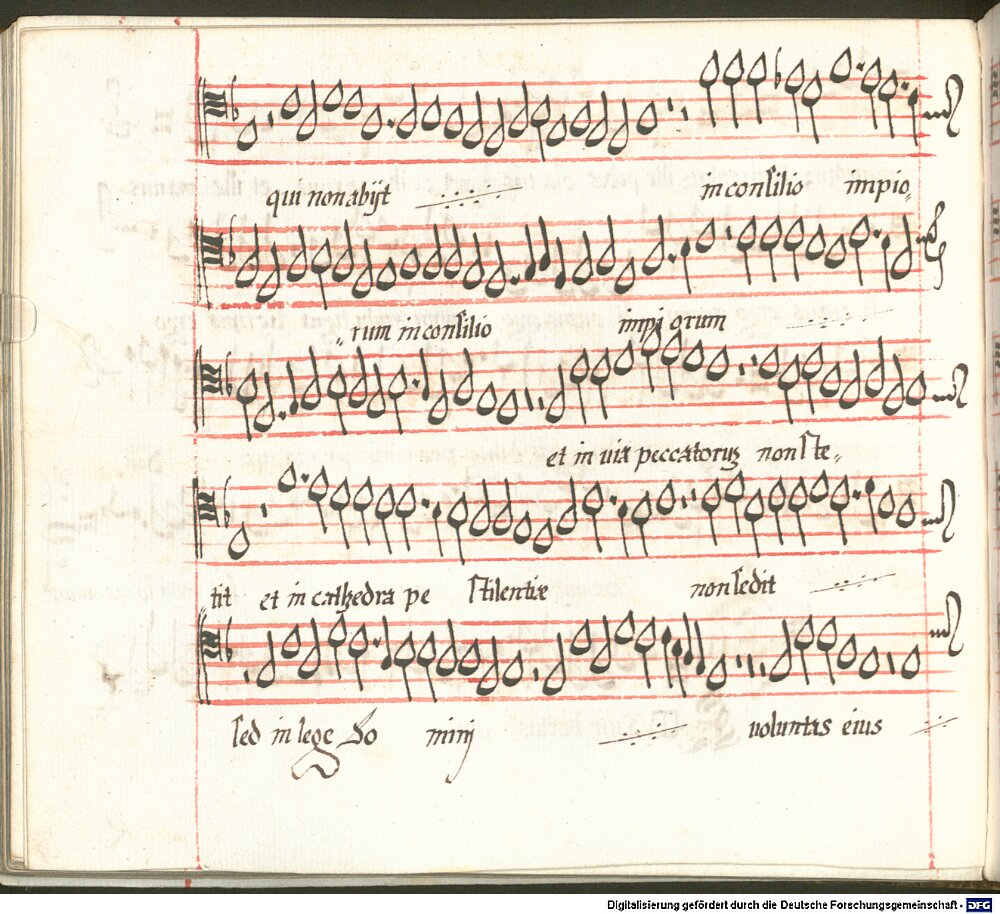 qui non abijt in consilio impio„
„rum in consilio impiorum
et in uia peccatorum non ste„
„tit et in cathedra pe stilentiæ non sedit
sed in lege Do minj uoluntas eius
Digitalisierung gefördert durch die Deutsche Forschungsgemeinschaft - DFG